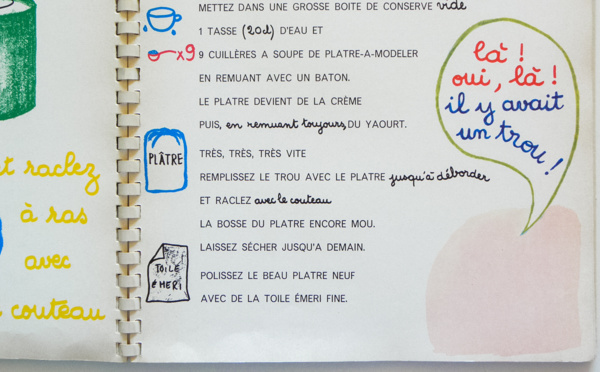 t raclez
à ras
avec
couteau
METTEZ DANS UNE GROSSE BOITE DE CONSERVE vide
1 TASSE (20cl) D'EAU ET
x9 9 CUILLÈRES A SOUPE DE PLATRE-A-MODELER
EN REMUANT AVEC UN BATON.
LE PLATRE DEVIENT DE LA CRÈME
PUIS, en remuant toujours, DU YAOURT.
PLÂTRE
TRÈS, TRÈS, TRÈS VITE
REMPLISSEZ LE TROU AVEC LE PLATRE jusqu'à déborder
ET RACLEZ avec le couteau
LA BOSSE DU PLATRE ENCORE MOU.
LAISSEZ SÉCHER JUSQU'A DEMAIN.
TOILE
ÉMERI
POLISSEZ LE BEAU PLATRE NEUF
AVEC DE LA TOILE ÉMERI FINE.
là !
oui, là !
il y avait
un trou !